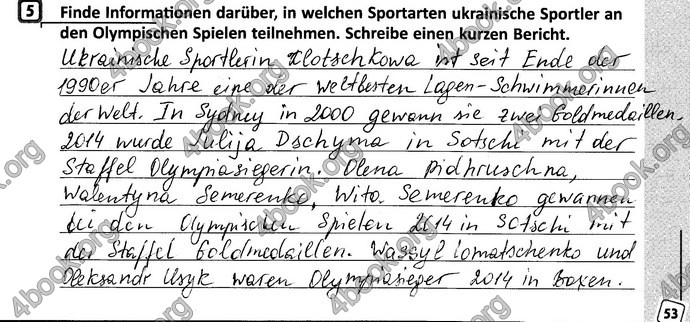 5 Finde Informationen darüber, in welchen Sportarten ukrainische Sportler an
den Olympischen Spielen teilnehmen. Schreibe einen kurzen Bericht.
Ukrainische Sportlerin Klotschkowa ist seit Ende der
1990er Jahre eine der weltbesten Lagen-Schwimmerinnen
der Welt. In Sydney in 2000 gewann sie zwei Goldmedaillen.
2014 wurde Julija Dschyma in Sotschi mit der
Staffel Olympiasiegerin. Olena Pidhruschna,
Walentyna Semerenko, Wita Semerenko gewannen
bei den Olympischen Spielen 2014 in Sotschi mit
der Staffel Goldmedaillen. Wassyl Lomatschenko und
Oleksandr Usyk waren Olympiasieger 2014 in Boxen.
53
4book.org
4book.org
4book.org
4book.org
4book.org
4book.org